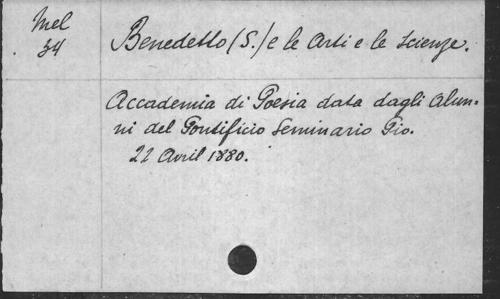 Mel
34
Benedetto (S.) e le Arti e le Scienze.
Accademia di Poesia data dagli Alun-
ni del Pontificio Seminario Pio.
22 Avril 1880.